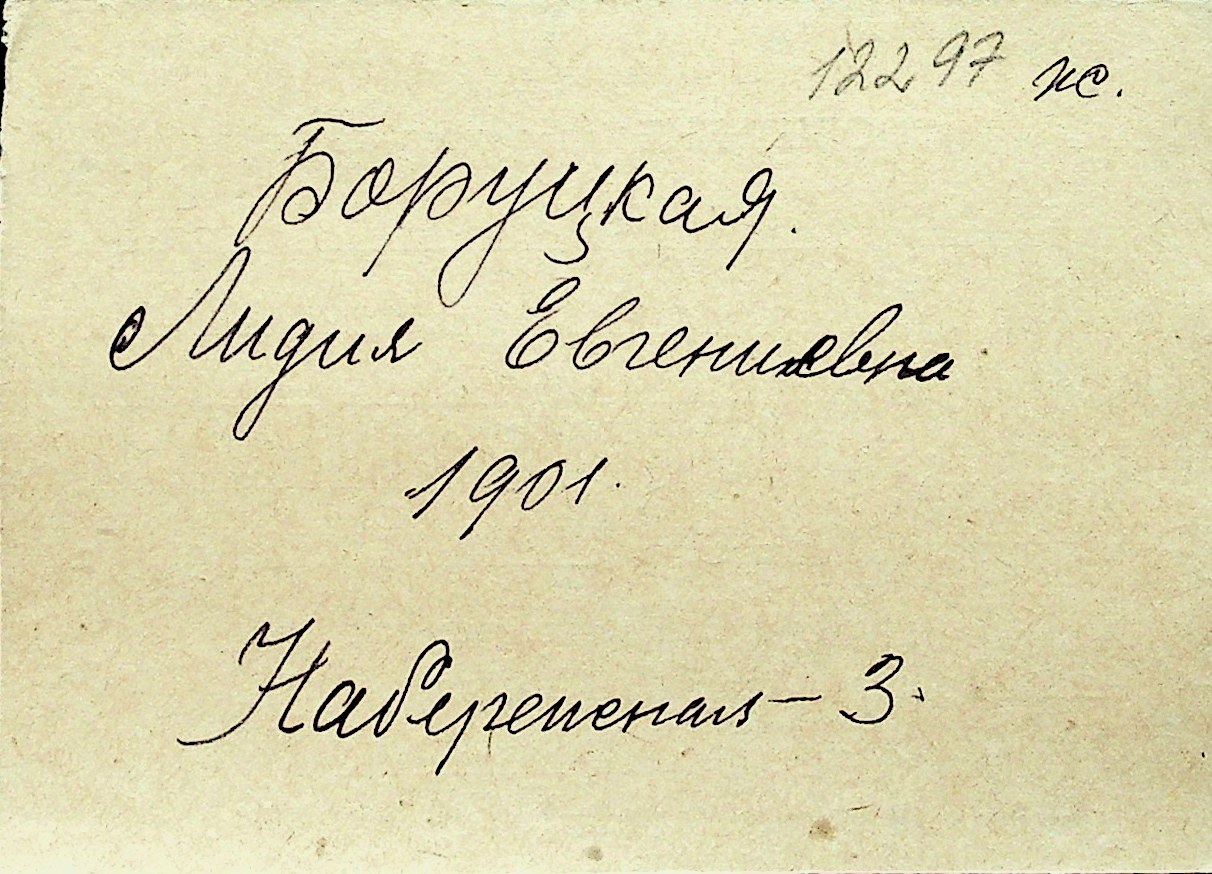 12297 пс.
Боруцкая.
Лидия Евгениевна
1901.
Набережная – 3.